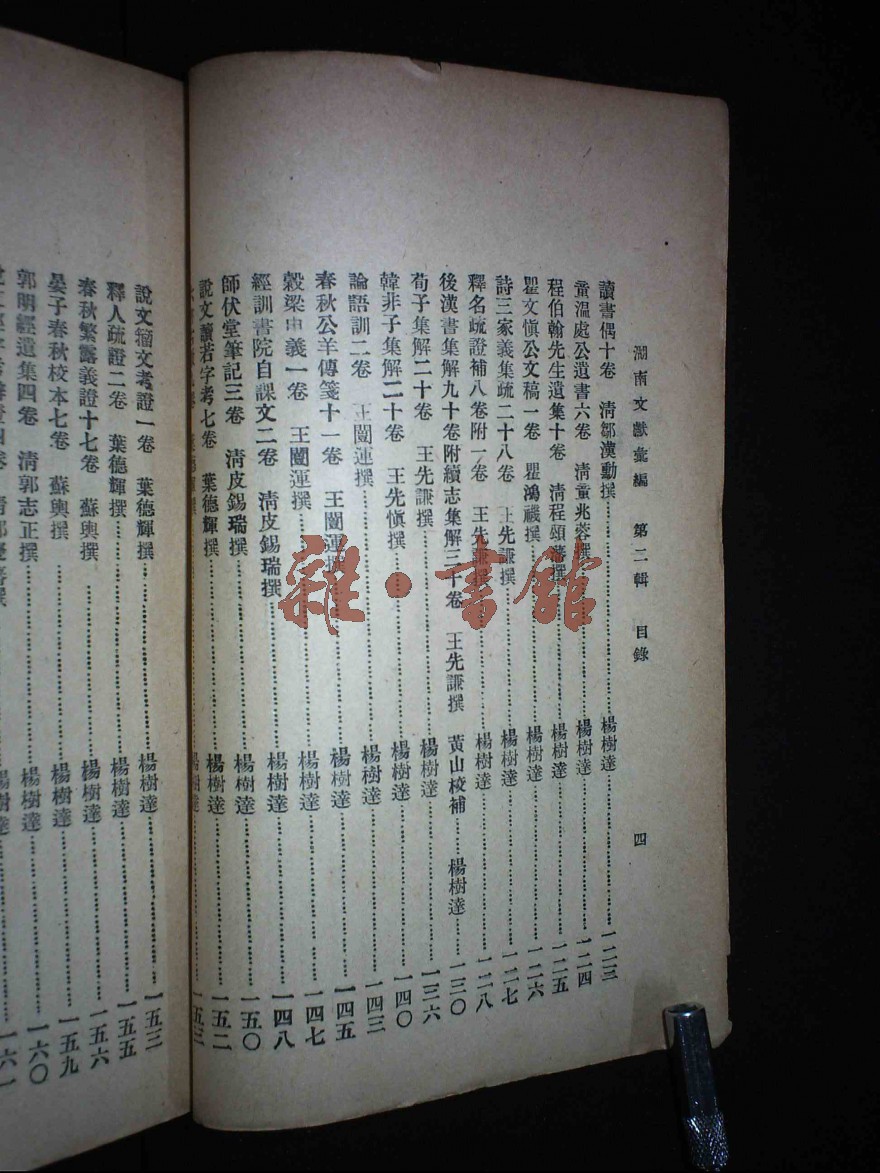 湖南文獻彙編 第二輯 目錄 四
讀書偶十卷 清鄒漢勳撰……楊樹達……一二三
童溫處公遺書六卷 清童兆蓉撰……楊樹達……一二四
程伯翰先生遺集十卷 清程頌藩撰……楊樹達……一二五
瞿文愼公文稿一卷 瞿鴻禨撰……楊樹達……一二六
詩三家義集疏二十八卷 王先謙撰……楊樹達……一二七
釋名疏證補八卷附一卷 王先謙撰……楊樹達……一二八
後漢書集解九十卷附續志集解三十卷 王先謙撰 黃山校補……楊樹達……一三〇
荀子集解二十卷 王先謙撰……楊樹達……一三六
韓非子集解二十卷 王先愼撰……楊樹達……一四〇
論語訓二卷 王闓運撰……楊樹達……一四三
春秋公羊傳箋十一卷 王闓運撰……楊樹達……一四五
穀梁申義一卷 王闓運撰……楊樹達……一四七
經訓書院自課文二卷 淸皮錫瑞撰……楊樹達……一四八
師伏堂筆記三卷 淸皮錫瑞撰……楊樹達……一五〇
說文讀若字考七卷 葉德輝撰……楊樹達……一五二
楊樹達……一五三
說文籀文考證一卷 葉德輝撰……楊樹達……一五三
釋人疏證二卷 葉德輝撰……楊樹達……一五五
春秋繁露義證十七卷 蘇輿撰……楊樹達……一五六
晏子春秋校本七卷 蘇輿撰……楊樹達……一五九
郭明經遺集四卷 清郭志正撰……楊樹達……一六〇
楊樹達……一六一
雜·書館